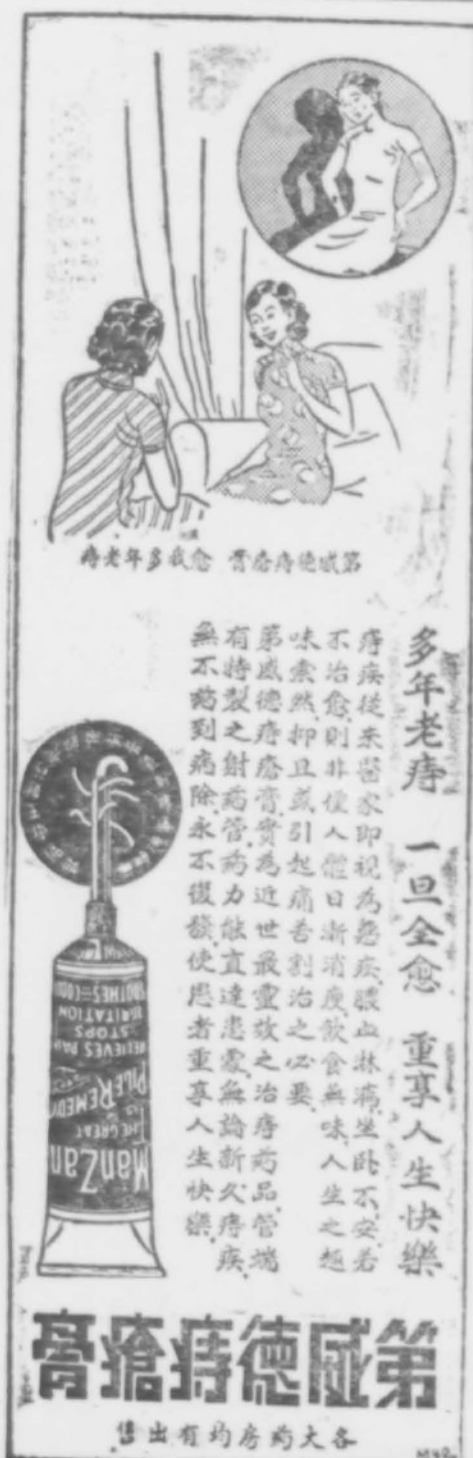 第威德痔瘡膏 愈我多年老痔
多年老痔 一旦全愈 重享人生快樂
痔疾從來醫家即視為惡疾膿血淋漓坐卧不安若
不治愈則非使人體日漸消瘦飲食無味人生之趣
味索然抑且或引起痛苦割治之必要
第威德痔瘡膏實為近世最靈效之治痔药品管端
有特製之射药管药力能直達患處無論新久痔疾
無不药到病除永不復發使患者重享人生快樂
ManZan
THE GREAT
PILE REMEDY
RELIEVES PAIN
STOPS
IRRITATION
SOOTHES-COOLS
第威德痔瘡膏
各大药房均有出售